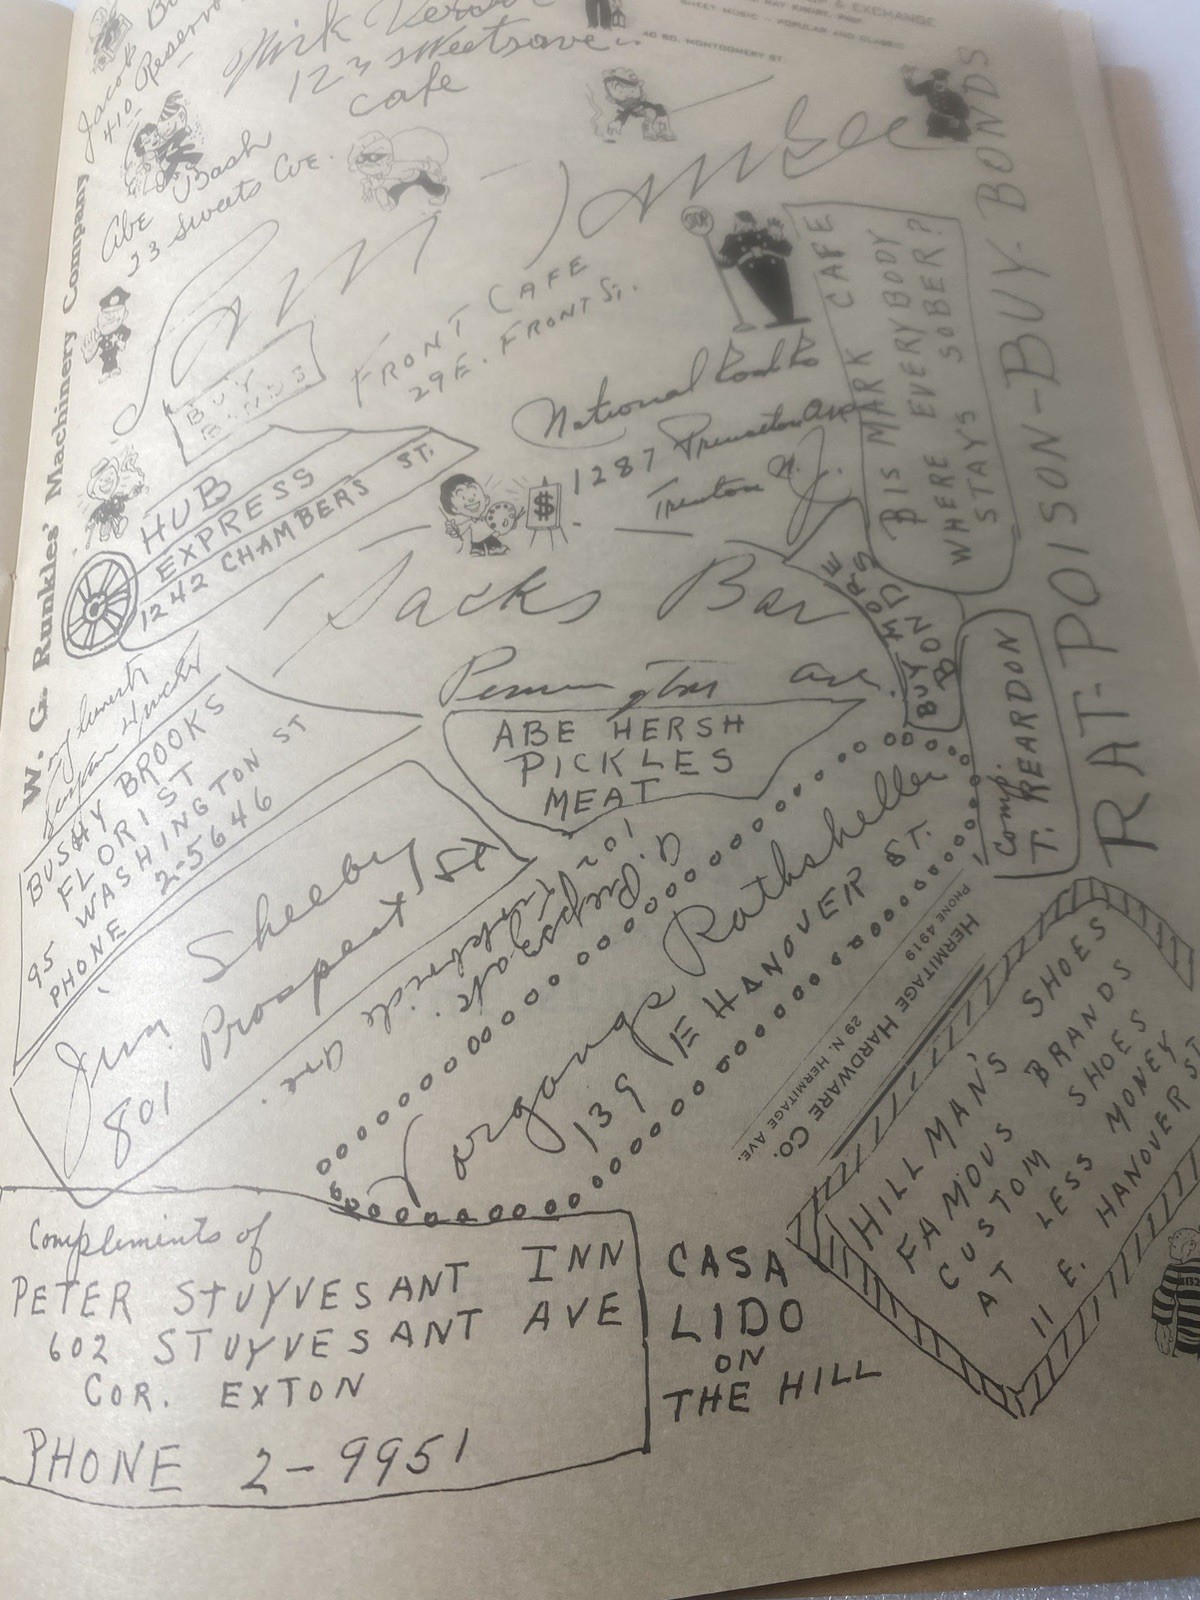 & EXCHANGE
SHEET MUSIC - POPULAR AND CLASSIC
40 SO. MONTGOMERY ST.
Jacob
410 Reservo
123 Sweetsave
Cafe
Abe Bash
23 Sweets Ave.
W. G. Runkles' Machinery Company
BUY
BONDS
FRONT CAFE
29 E. FRONT St.
STOP
BIS MARK CAFE
WHERE EVERYBODY
STAYS SOBER?
RAT-POISON-BUY-BONDS
National
1287 Princeton Ave
Trenton N.J.
$
HUB
EXPRESS
1242 CHAMBERS ST.
Jacks Bar
Pennington ave.
BUY MORE
BONDS
Comp.
T. REARDON
ABE HERSH
PICKLES
MEAT
BUSHY BROOKS
FLORIST
95 WASHINGTON ST
PHONE 2-5646
Jim Sheeby
801 Prospect St
Rathskeller
139 E HANOVER ST.
HERMITAGE HARDWARE CO.
29 N. HERMITAGE AVE.
PHONE 4919
HILLMAN'S SHOES
FAMOUS BRANDS
CUSTOM SHOES
AT LESS MONEY
11 E. HANOVER ST
Complements of
PETER STUYVESANT INN
602 STUYVESANT AVE
COR. EXTON
PHONE 2-9951
CASA
LIDO
ON
THE HILL